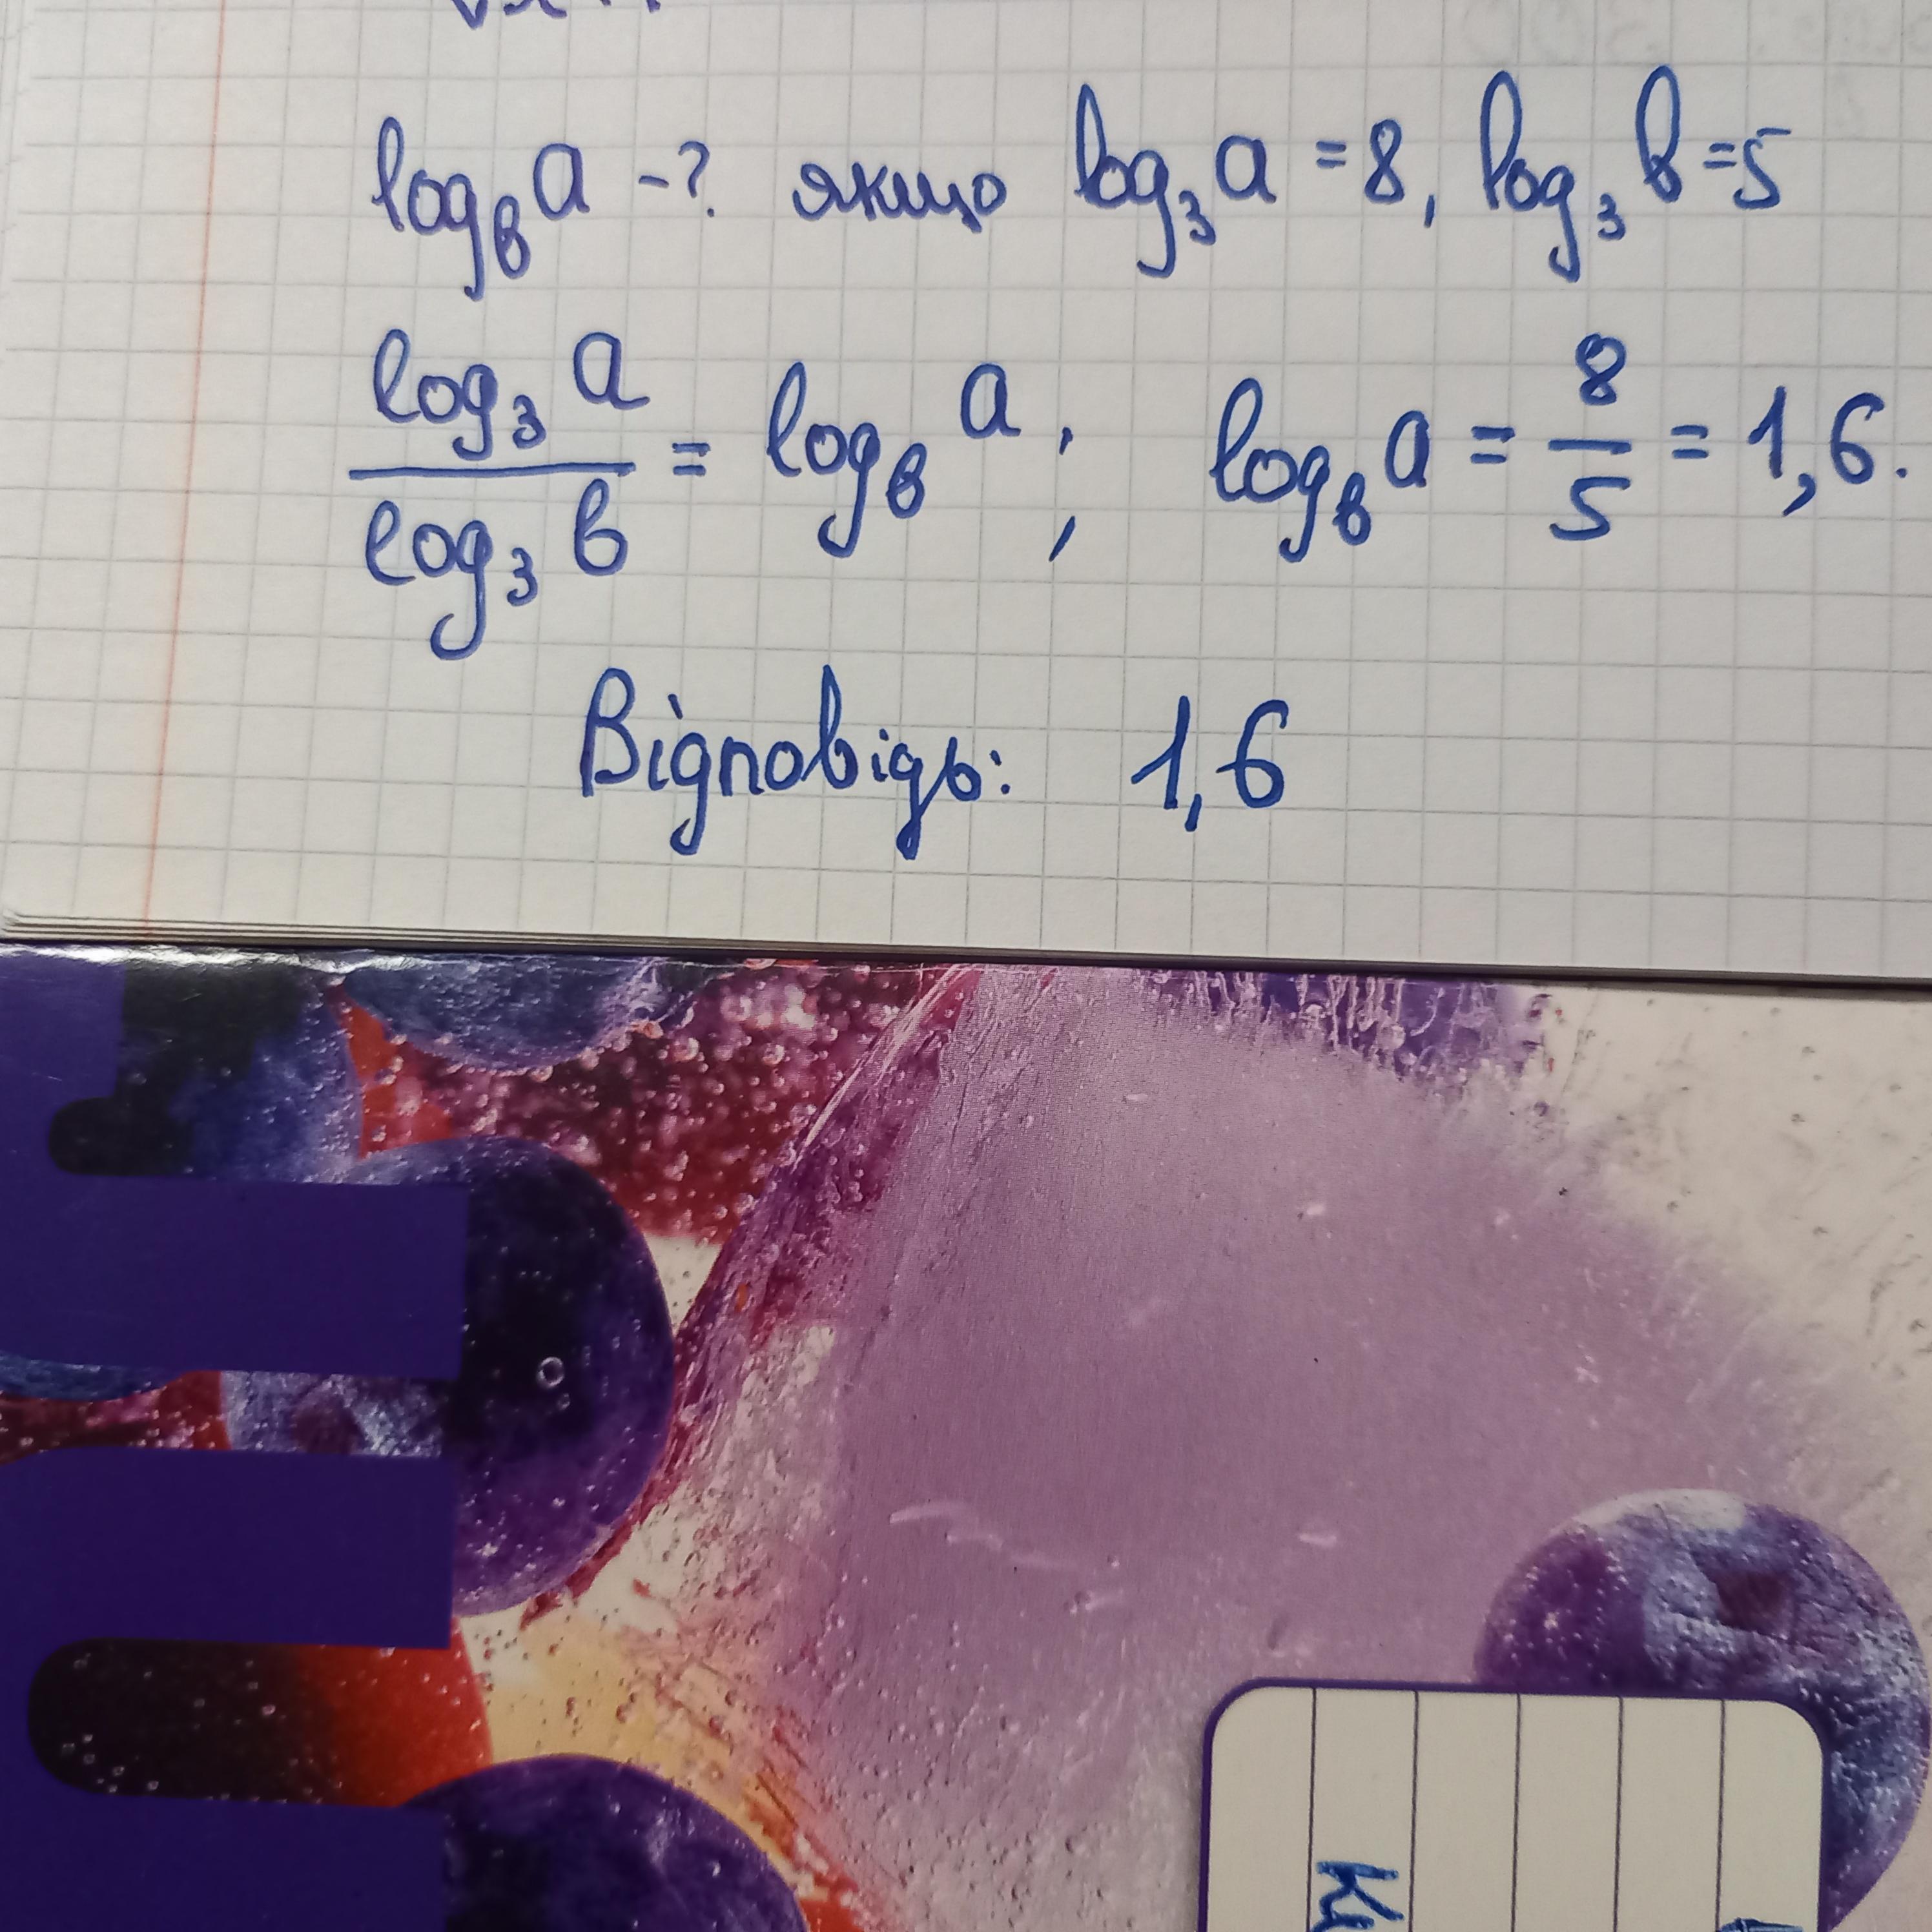 log_b a - ? якщо log_3 a = 8, log_3 b = 5
log_3 a / log_3 b = log_b a ; log_b a = 8/5 = 1,6.
Відповідь: 1,6